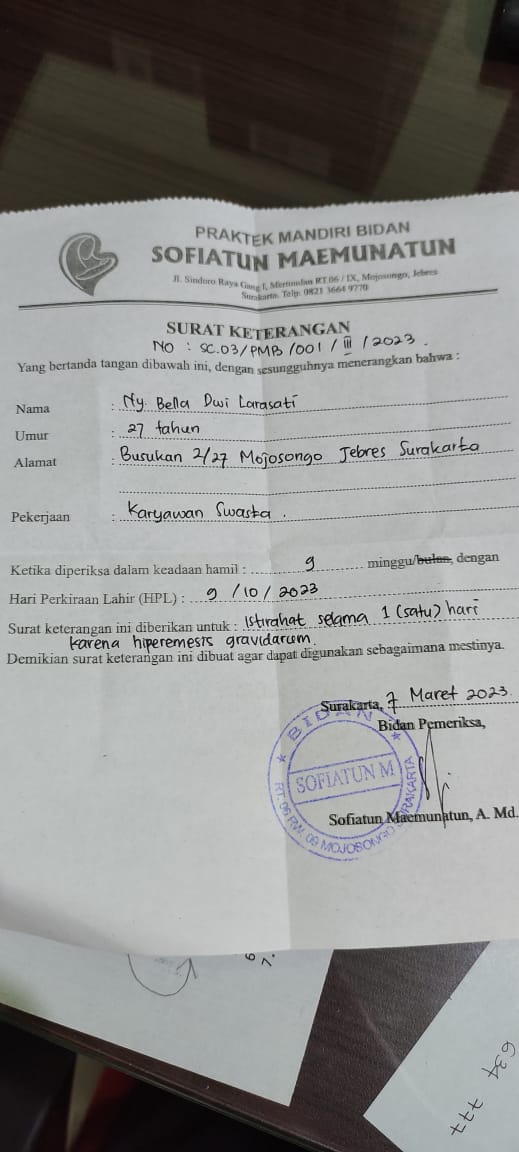 PRAKTEK MANDIRI BIDAN
SOFIATUN MAEMUNATUN
Jl. Sindoro Raya Gang I, Mertoudan RT.06 / IX, Mojosongo, Jebres
Surakarta. Telp. 0821 3664 9770
SURAT KETERANGAN
NO : SC.03/PMB/001/III/2023.
Yang bertanda tangan dibawah ini, dengan sesungguhnya menerangkan bahwa :
Nama : Ny. Bella Dwi Larasati
Umur : 27 tahun
Alamat : Busukan 2/27 Mojosongo Jebres Surakarta
Pekerjaan : Karyawan Swasta.
Ketika diperiksa dalam keadaan hamil : 9 minggu/bulan, dengan
Hari Perkiraan Lahir (HPL) : 9/10/2023
Surat keterangan ini diberikan untuk : Istirahat selama 1 (satu) hari
karena hiperemesis gravidarum.
Demikian surat keterangan ini dibuat agar dapat digunakan sebagaimana mestinya.
Surakarta, 7 Maret 2023.
Bidan Pemeriksa,
BIDAN
SOFIATUN M
RT. 06 RW. 09 MOJOSONGO SURAKARTA
Sofiatun Maemunatun, A. Md.
634 777